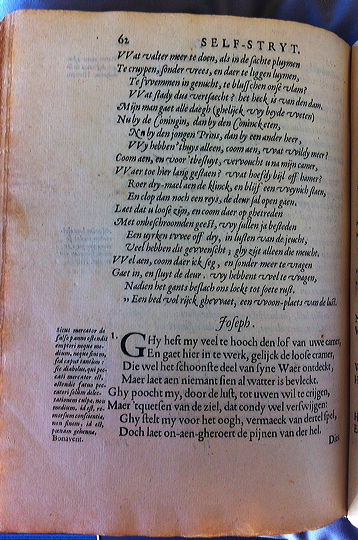 62 SELF-STRYT.
VVat valter meer te doen, als in de sachte pluymen
Te cruypen, sonder vrees, en daer te liggen luymen,
Te swemmen in genucht, te blusschen onse vlam?
VVat stady dus vertsaecht? het heck is van den dam,
Mijn man gaet alle daegh (ghelijck vvy beyde vveten)
Nu by de Coningin, dan by den Coninck eten,
Nu by den jongen Prins, dan by een ander heer,
VVy hebben 't huys alleen, coom aen, vvat vvildy meer?
Coom aen, en voor 't besluyt, vervoucht u na mijn camer,
VVaer toe hier lang gestaen? vvat hoefdy bijl off hamer?
Roer dry-mael aen de klinck, en blijf een vveynich staen,
En clop dan noch eens reys, de deur sal open gaen.
Laet dat u loose zijn, en coom daer op ghetreden
Met onbeschroomden geest, vvy sullen ja besteden
Een uyrken tvvee oft dry, in lusten van de jeucht,
Veel hebben dit gevvenscht; ghy zijt alleen die meucht.
VVel aen, coom daer ick seg, en sonder meer te vragen
Gaet in, en sluyt de deur. vvy hebben veel te vragen,
Nadien het gants beslach ons lockt tot soete rust.
,, Een bed vol rijck ghevvaet, een vvoon-plaets van de lust.
Joseph.
1. GHy heft my veel te hooch den lof van uwe camer,
En gaet hier in te werk, gelijck de loose cramer,
Die wel het schoonste deel van syne Waer ontdeckt,
Maer laet aen niemant sien al watter is bevleckt.
Ghy poocht my, door de lust, tot uwen wil te crijgen,
Maer 'tquetsen van de ziel, dat condy wel verswijgen:
Ghy stelt my voor het oogh, vermaeck van dertel spel,
Doch laet on-aen-gheroert de pijnen van der hel.
Dies
Sicut mercator de
falso panno ostendit
emptori neque me-
dium, neque finem,
sed caput tantum:
sic diabolus, qui pec-
cati mercator est,
ostendit fatuo pec-
catori solum delec-
tationem culpæ, non
medium, id est, re-
morsum conscientiæ,
non finem, id est,
pœnam gehennæ.
Bonavent.